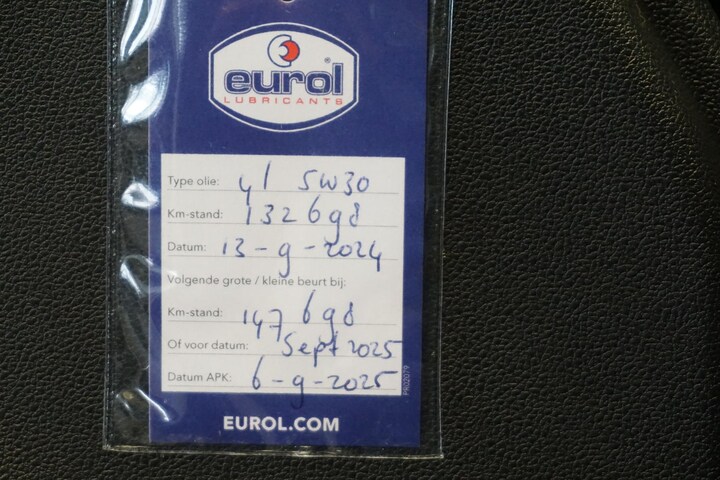 eurol®
LUBRICANTS
Type olie: 4l 5W30
Km-stand: 132698
Datum: 13-9-2024
Volgende grote / kleine beurt bij:
Km-stand: 147698
Of voor datum: Sept 2025
Datum APK: 6-9-2025
PR02079
EUROL.COM